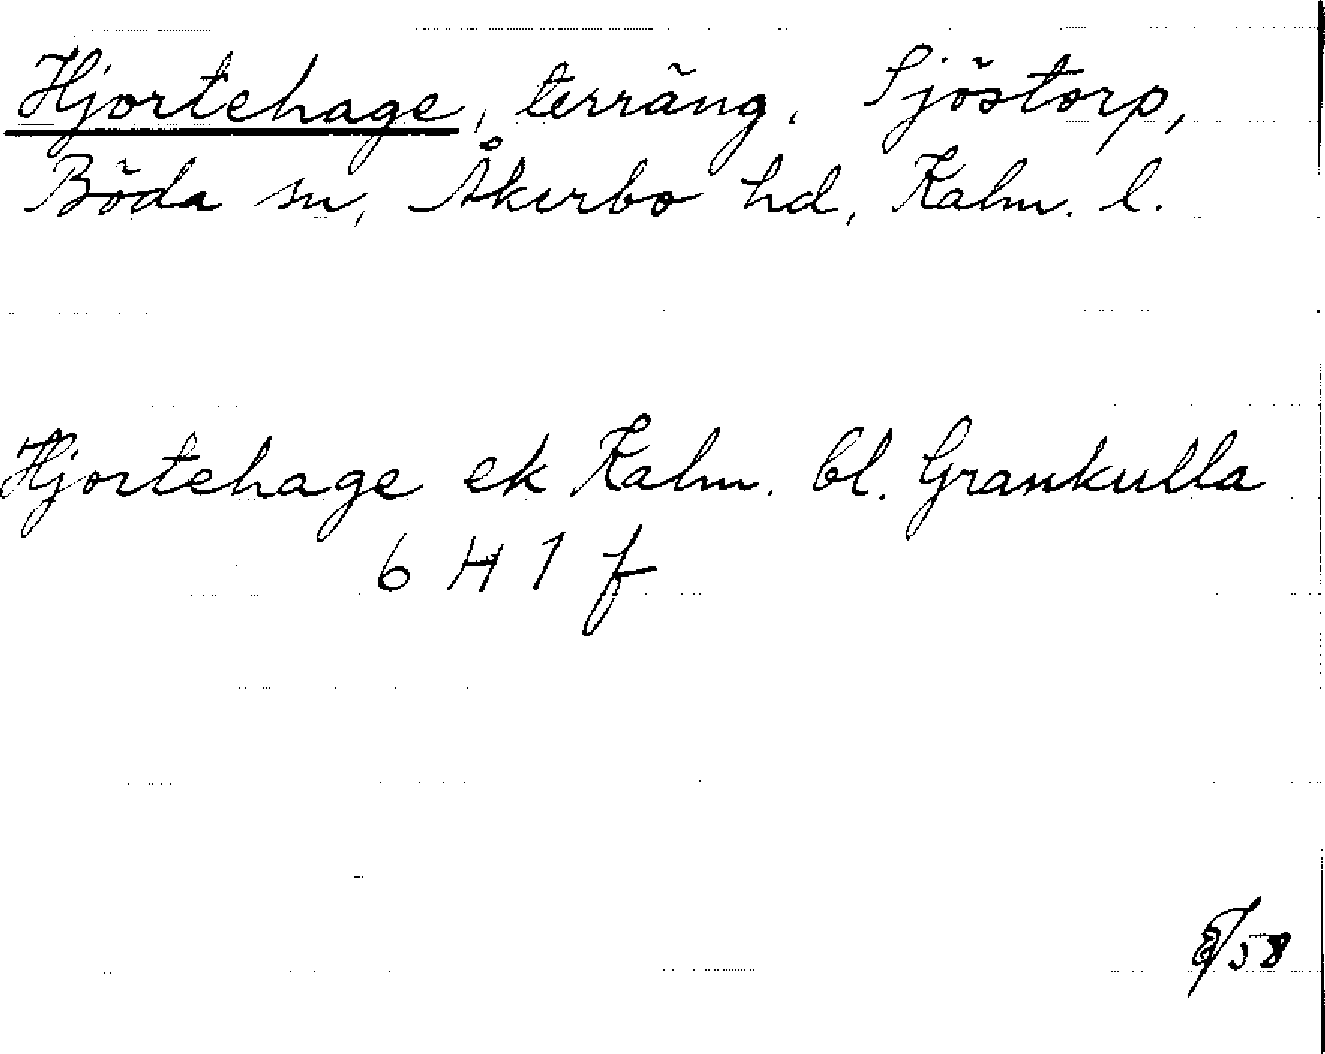 Hjortehage, terräng. Sjöstorp,
Böda sn, Åkerbo hd, Kalm. l.
Hjortehage ek Kalm. bl. Grankulla
6 H 1 f
/58